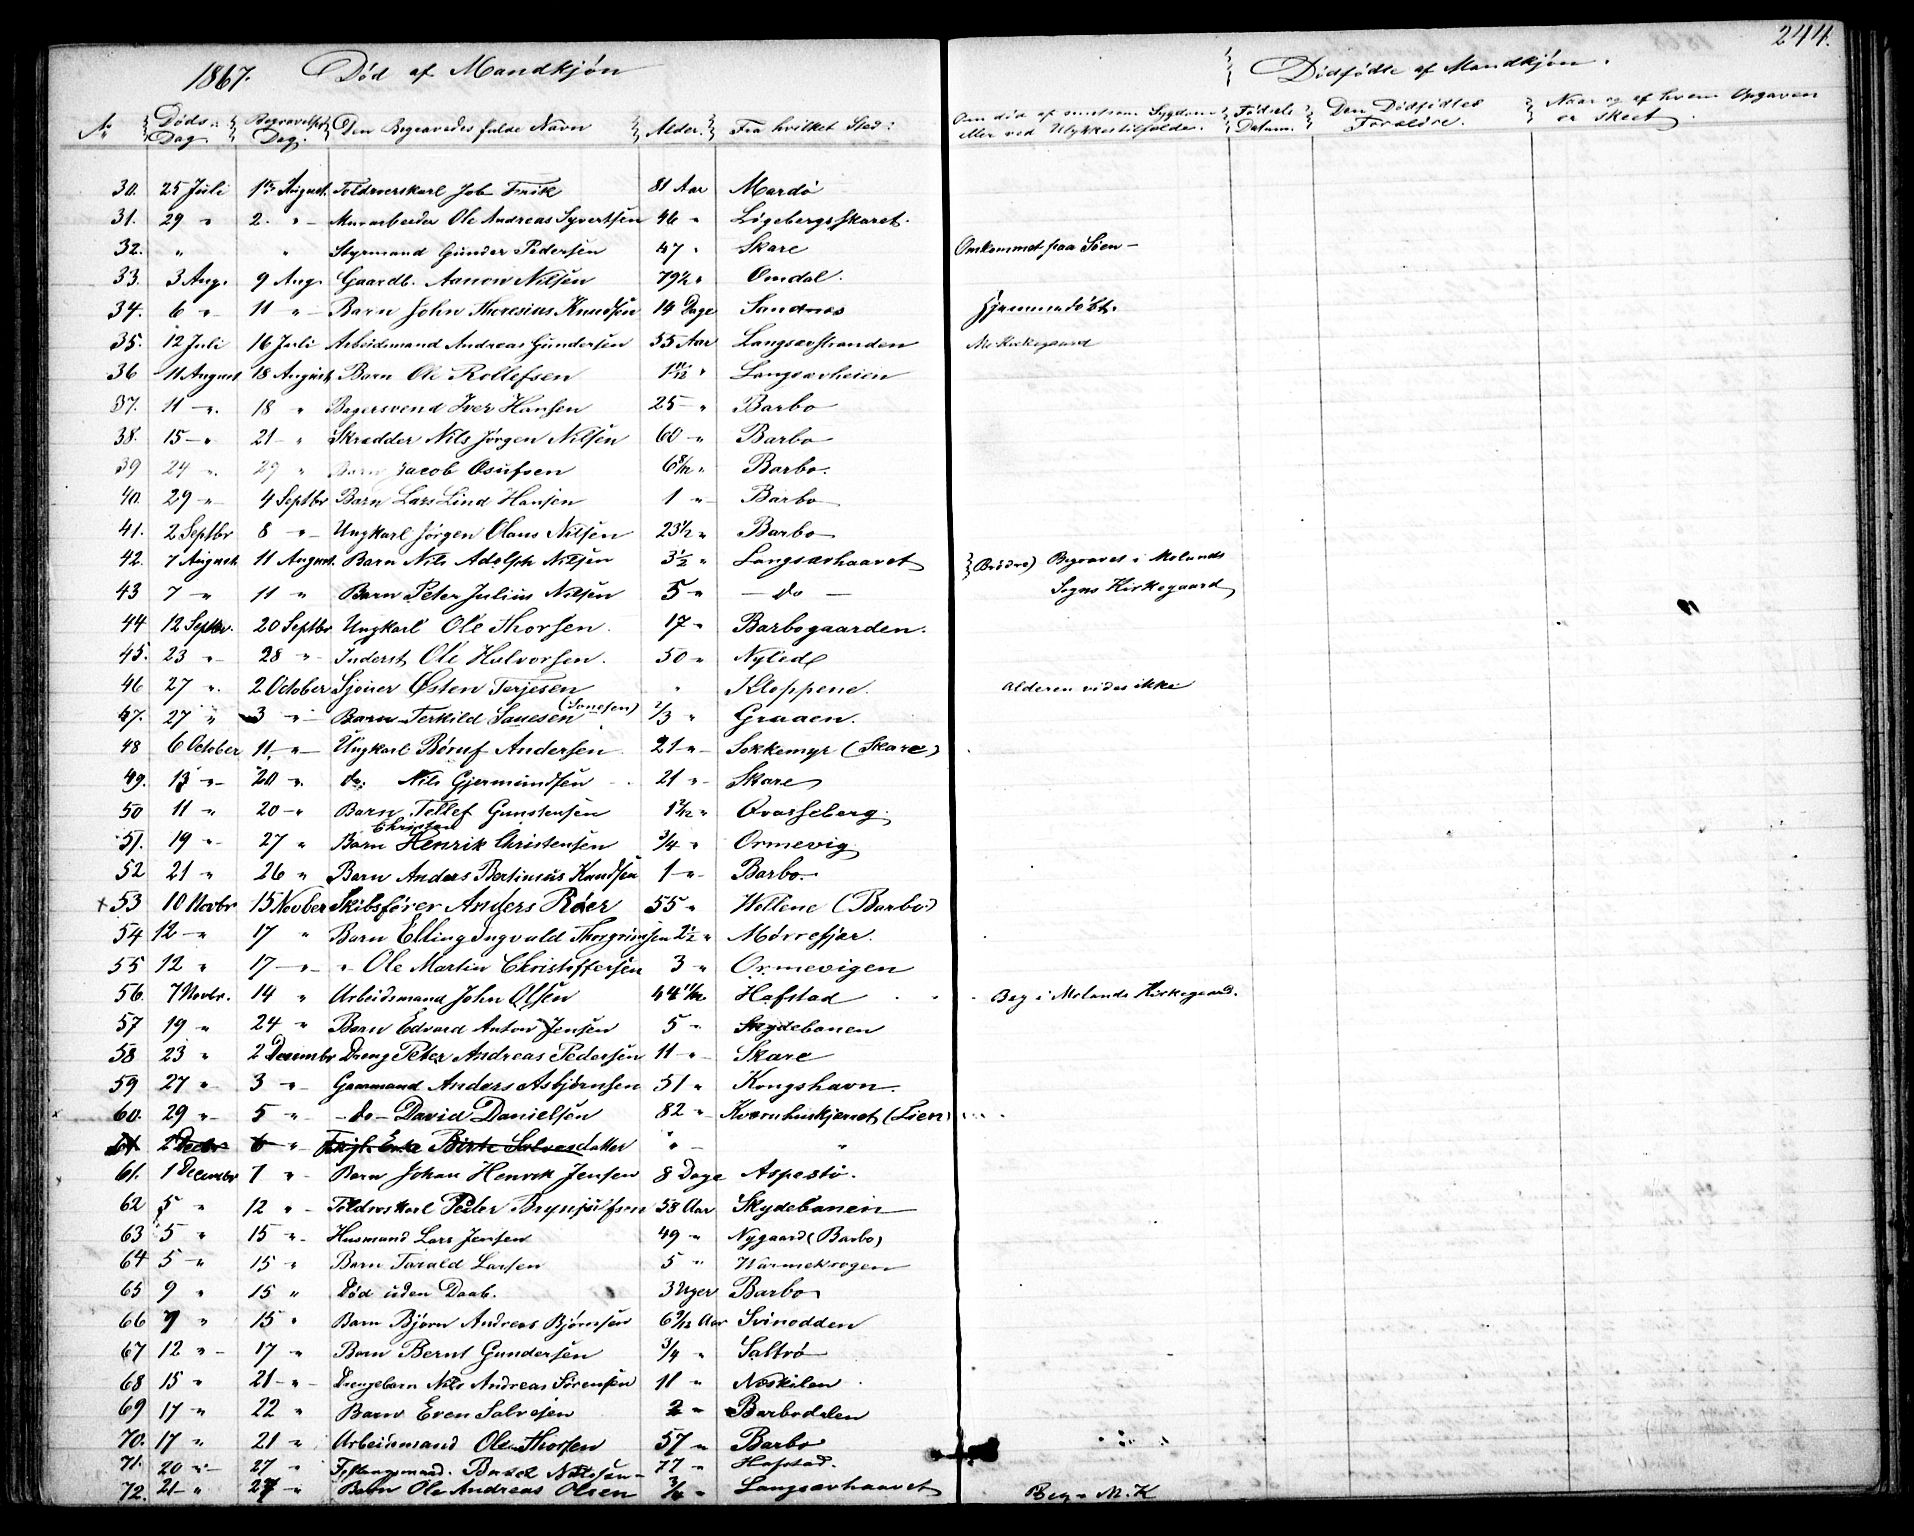 244.
1867. Død af Mandkjøn
Dødfødte af Mandkjøn.
No Døds- Dag Begravelses Dag. Den Begravedes fulde Navn Alder. Fra hvilket Sted: Om død af smitsom Sygdom eller ved Ulykkestilfælde. Fødsels Datum. Den Dødfødtes Forældre. Naar og af hvem Opgaven er skeet
30. 25 Juli 1ste August. Toldroerskarl Job 81 Aar Mardø
31. 29 " 2. " Murarbeider Ole Andreas Syvertsen 46 " Løgebergsskaret.
32. " " Styrmand Gunder Pedersen 47 " Skare Omkommet paa Søen -
33. 3 Aug. 9 Aug. Gaardb. Aanon Nilsen 79½ " Omdal.
34. 6 " 11 " Barn John Thoresius Knudsen 14 Dage Sandnes Hjemmedøbt.
35. 12 Juli 16 Juli Arbeidsmand Andreas Gundersen 55 Aar Langsævstranden M. Kirkegaard
36 11 August 18 August Barn Ole Rollefsen 1 11/12 " Langsævheien
37. 11 " 18 " Bagersvend Iver Hansen 25 " Barbo
38. 15 " 21 " Skrædder Nils Jørgen Nilsen 60 " Barbo
39 24 " 29 " Barn Jacob Osufsen 6 8/12 " Barbo.
40. 29 " 4 Septbr Barn Lars Lind Hansen 1 " Barbo
41. 2 Septbr 8 " Ungkarl Jørgen Olaus Nilsen 23½ " Barbo
42. 7 August 11 August. Barn Nils Adolph Nilsen 3½ " Langsævhaavet (Brødre) Begravet i Molands
43 7 " 11 " Barn Peter Julius Nilsen 5 " - do - Sogns Kirkegaard
44 12 Septbr. 20 Septbr Ungkarl Ole Thorsen. 17 " Barbogaarden.
45. 23 " 28 " Inderst Ole Halvorsen. 50 " Nyled
46 27 " 2 October Sjouer Østen Terjesen " Kloppene. Alderen vides ikke
47. 27 " 3 " Barn Terkild Sanesen (Jonesen) 2/3 " Graaen.
48 6 October 11 " Ungkarl Børuf Andersen 21 " Sokkemyr (Skare)
49. 13 " 20 " do: Nils Gjermundsen 21 " Skare
50 11 " 20 " Barn Tellef Gunstensen 1 2/12 " Qvasseberg.
Christen
51. 19 " 27 " Barn Henrik Christensen 3/4 " Ormevig
52 21 " 26 " Barn Anders Bertinius Knudsen 1 " Barbo.
+ 53 10 Novbr 15 Novber Skibsfører Anders Röer 55 " Wellene (Barbo)
54 12 " 17 " Barn Elling Ingvald Thorgrimsen 2½ " Mørrefjær.
55 12 " 17 " " Ole Martin Christoffersen 3 " Ormevigen
56. 7 Novbr. 14 " Arbeidsmand John Olsen 44 11/12 Hafstad Beg i Molands Kirkegaard.
57 19 " 24 " Barn Edvard Anton Jensen 5 " Skydebanen
58 23 " 2 Decembr Dreng Peter Andreas Pedersen 11 " Skare
59 27 " 3 " Gaarmand Anders Asbjørnsen 51 " Kongshavn.
60. 29 " 5 " - do - David Danielsen 82 " Kværnhuskjerret (Lien)
61 2 Decbr 6 " Enke Birte Salvesdatter " "
61. 1 Decembr 7 " Barn Johan Henrik Jensen 8 Dage Aspestø.
62 5 " 12 " Toldroerskarl Peder Brynjulfsen 58 Aar Skydebanen
63 5 " 15 " Husmand Lars Jensen 49 " Nygaard (Barbo)
64 5 " 15 " Barn Tarald Larsen 5 " Warmekrogen
65 9 " 15 " Død uden Daab. 3 Uger Barbo
66 7 " 15 " Barn Bjørn Andreas Bjørnsen 6 9/12 Aar Svinodden
67 12 " 17 " Barn Bernt Gundersen 3/4 " Saltrø
68 15 " 21 " Drengebarn Nils Andreas Sørensen 11 " Neskilen
69 17 " 22 " Barn Even Salvesen 2 " Barbodalen
70. 17 " 21 " Arbeidsmand Ole Thorsen 57 " Barbo
71. 20 " 27 " Nielssen 77 " Hafstad.
72. 21 " 27 " Barn Ole Andreas Olsen 3/4 " Langsævhaavet Beg. M.K